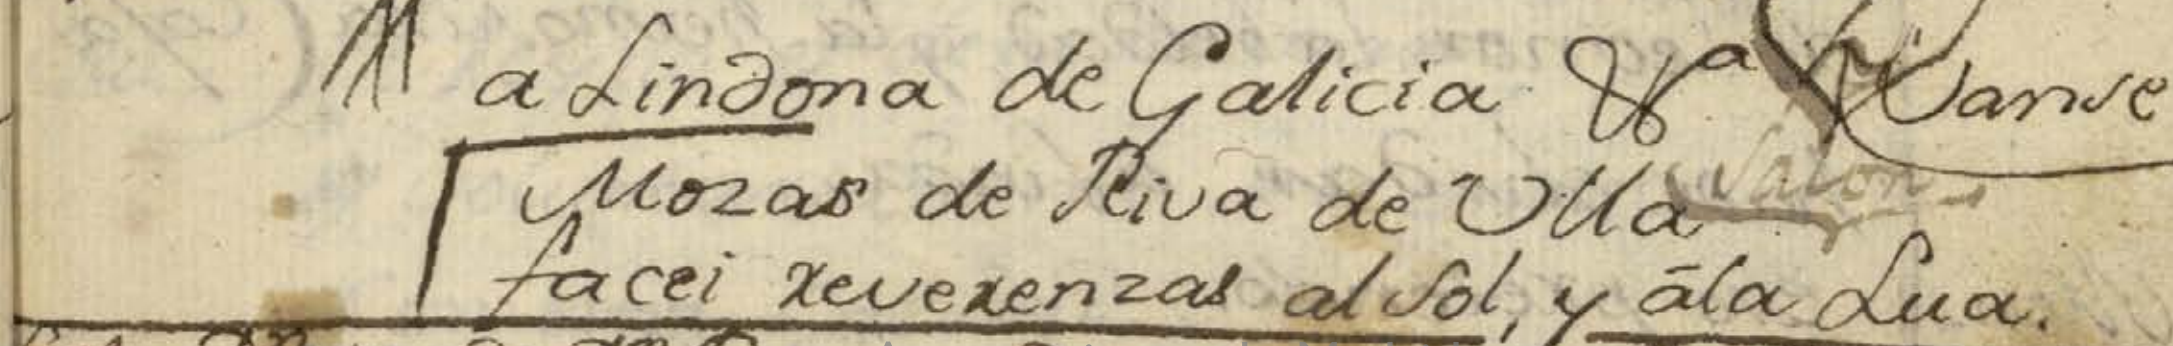 a Lindona de Galicia &ª Vanse
Salon
Mozas de Riva de Ulla
facei reverenzas al sol, y āla Lua.